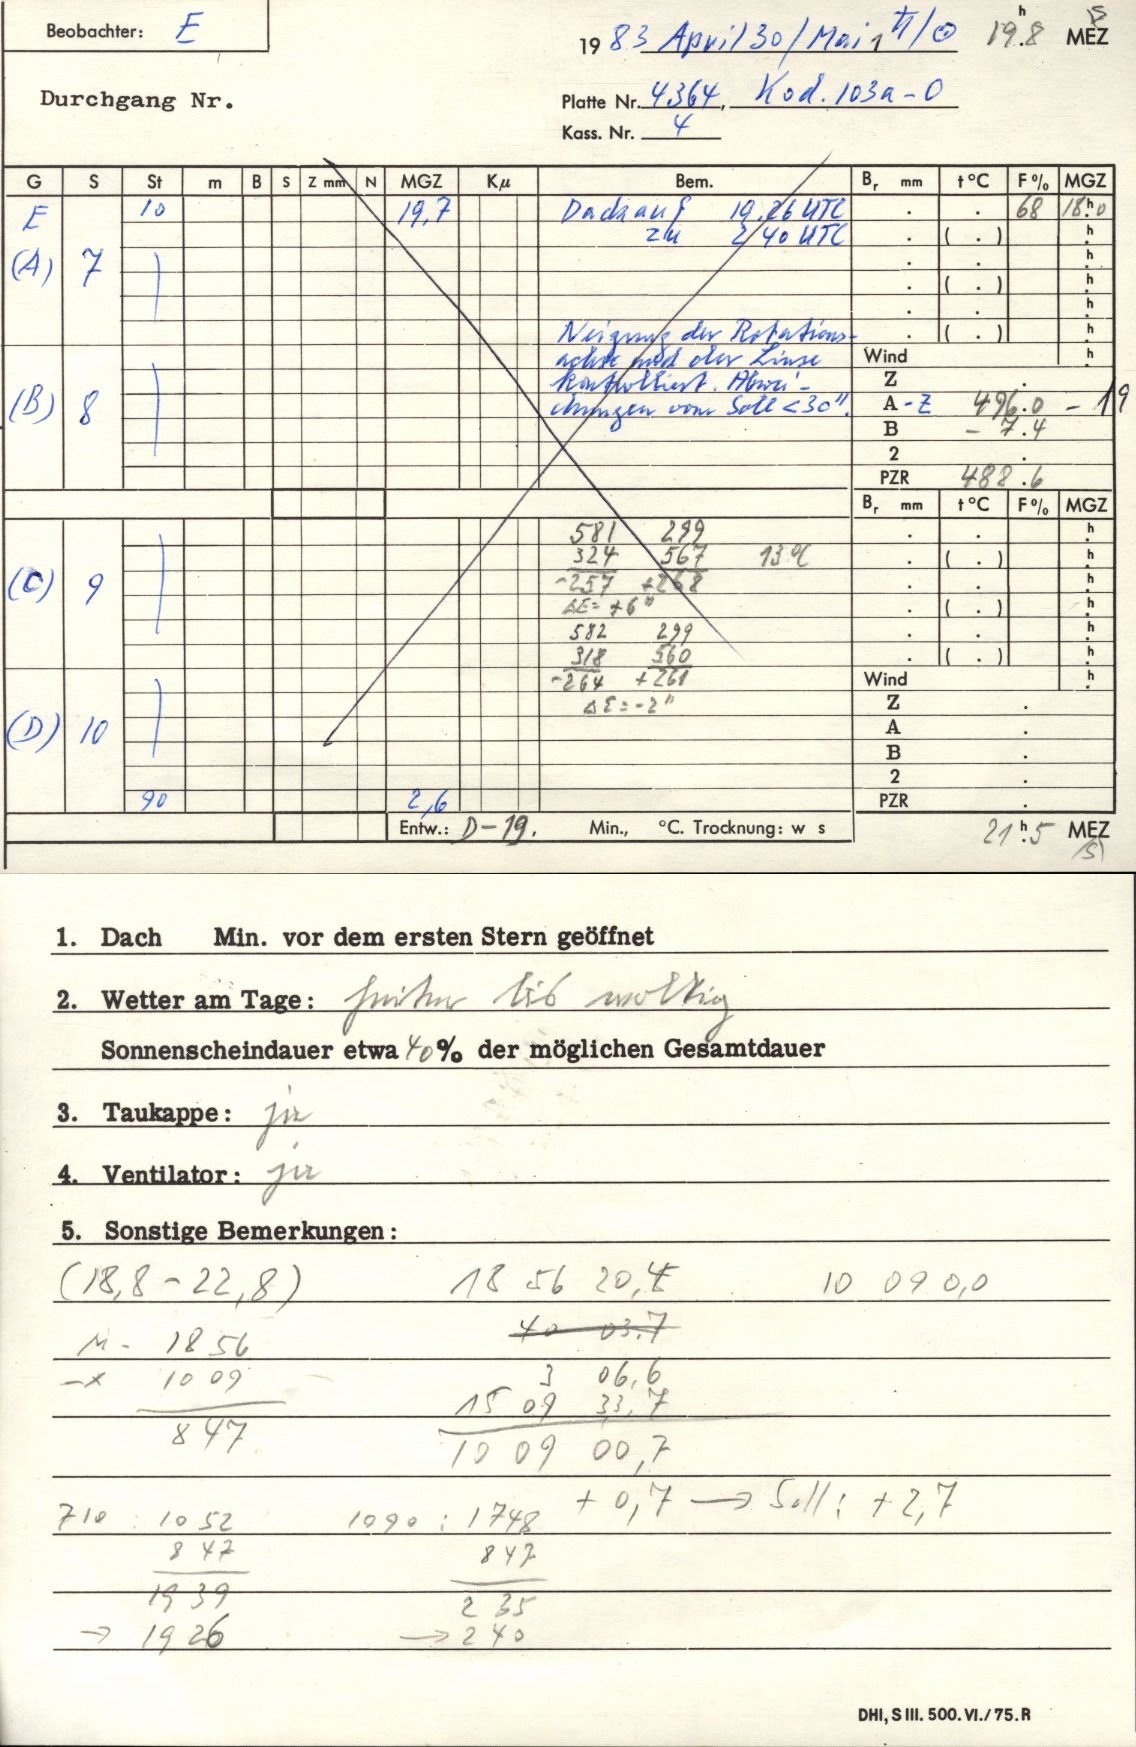 Beobachter: E
19 83 April 30/Mai 1 19h.8 MEZ
S
Durchgang Nr.
Platte Nr. 4364, Kod. 103a-O
Kass. Nr. 4
G S St m B S Z mm N MGZ Kμ Bem. Br mm t °C F% MGZ
E 10 19,7 Dach auf 19.26 UTC . . 68 18h.0
zu 2 40 UTC . ( . ) h.
(A) 7
Neigung der Rotations-
achse und der Linse Wind
kontrolliert. Abwei- Z .
(B) 8 chungen vom Soll <30". A -Z 496.0 - 19
B - 7.4
2 .
PZR 488.6
Br mm t °C F% MGZ
581 299
324 567 13°C
-257 +268
(C) 9
ΔE= +6"
582 299
318 560
-264 +261 Wind
ΔE=-2" Z .
(D) 10 A .
B .
2 .
90 2,6 PZR .
Entw.: D-19. Min., °C. Trocknung: w s 21h.5 MEZ
(S)
1. Dach Min. vor dem ersten Stern geöffnet
2. Wetter am Tage: heiter bis wolkig
Sonnenscheindauer etwa 40% der möglichen Gesamtdauer
3. Taukappe: ja
4. Ventilator: ja
5. Sonstige Bemerkungen:
(18,8-22,8) 18 56 20,4 10 09 0,0
40 03.7
M - 18 56
-x 10 09 3 06,6
15 09 33,7
8 47 10 09 00,7
+0,7 → Soll: +2,7
710 : 10 52 1090 : 1748
8 47 847
19 39 2 35
→ 19 26 → 2 40
DHI, S III. 500. VI./75. R